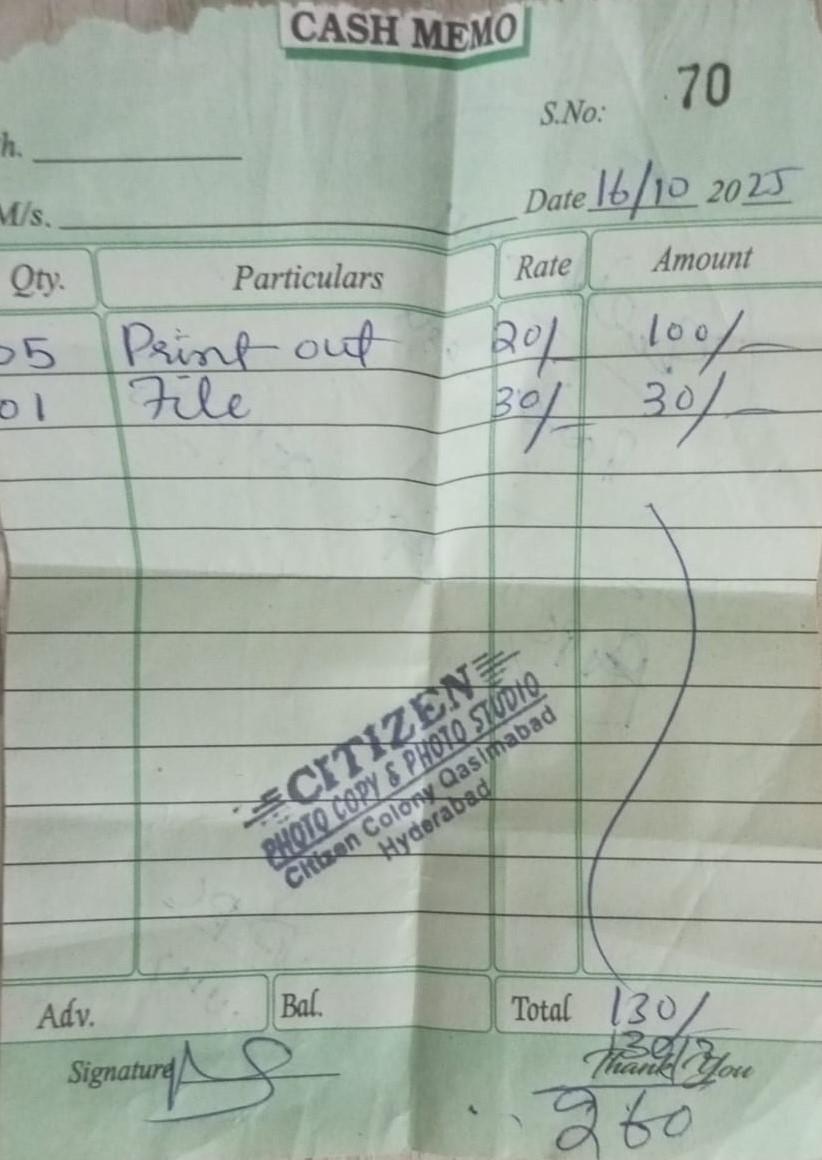 CASH MEMO
S.No: 70
h.
M/s. Date 16/10 2025
Qty. Particulars Rate Amount
05 Print out 20/- 100/-
01 File 30/- 30/-
CITIZEN
PHOTO COPY & PHOTO STUDIO
Citizen Colony Qasimabad
Hyderabad
Adv. Bal. Total 130/
Signature Thank You
260